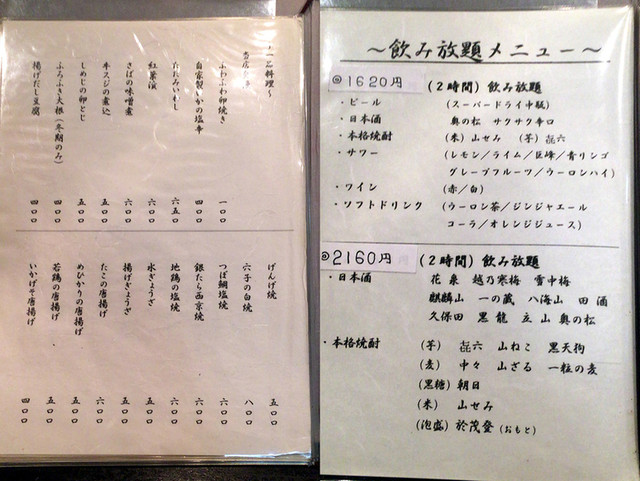 ～一品料理～
ふわふわ卵焼き 一〇〇
自家製いかの塩辛 四〇〇
たたみいわし 六五〇
紅葉漬 六〇〇
さばの味噌煮 六〇〇
牛スジの煮込 五〇〇
しめじの卵とじ 五〇〇
ふろふき大根（冬期のみ） 四〇〇
揚げだし豆腐 四〇〇
げんげ焼 五〇〇
穴子の白焼 八〇〇
つぼ鯛塩焼 六〇〇
銀たら西京焼 六〇〇
地鶏の塩焼 六〇〇
水ぎょうざ 五〇〇
揚げぎょうざ 五〇〇
たこの唐揚げ 六〇〇
めひかりの唐揚げ 五〇〇
若鶏の唐揚げ 五〇〇
いかげそ唐揚げ 四〇〇
～飲み放題メニュー～
◎1620円 （２時間）飲み放題
・ビール （スーパードライ中瓶）
・日本酒 奥の松 サクサク辛口
・本格焼酎 （米）山せみ （芋）㐂六
・サワー （レモン／ライム／巨峰／青リンゴ
グレープフルーツ／ウーロンハイ）
・ワイン （赤／白）
・ソフトドリンク （ウーロン茶／ジンジャエール
コーラ／オレンジジュース）
◎2160円 （２時間）飲み放題
・日本酒 花泉 越乃寒梅 雪中梅
麒麟山 一の蔵 八海山 田酒
久保田 黒龍 立山 奥の松
・本格焼酎 （芋） 㐂六 山ねこ 黒天狗
（麦） 中々 山ざる 一粒の麦
（黒糖）朝日
（米） 山せみ
（泡盛）於茂登（おもと）